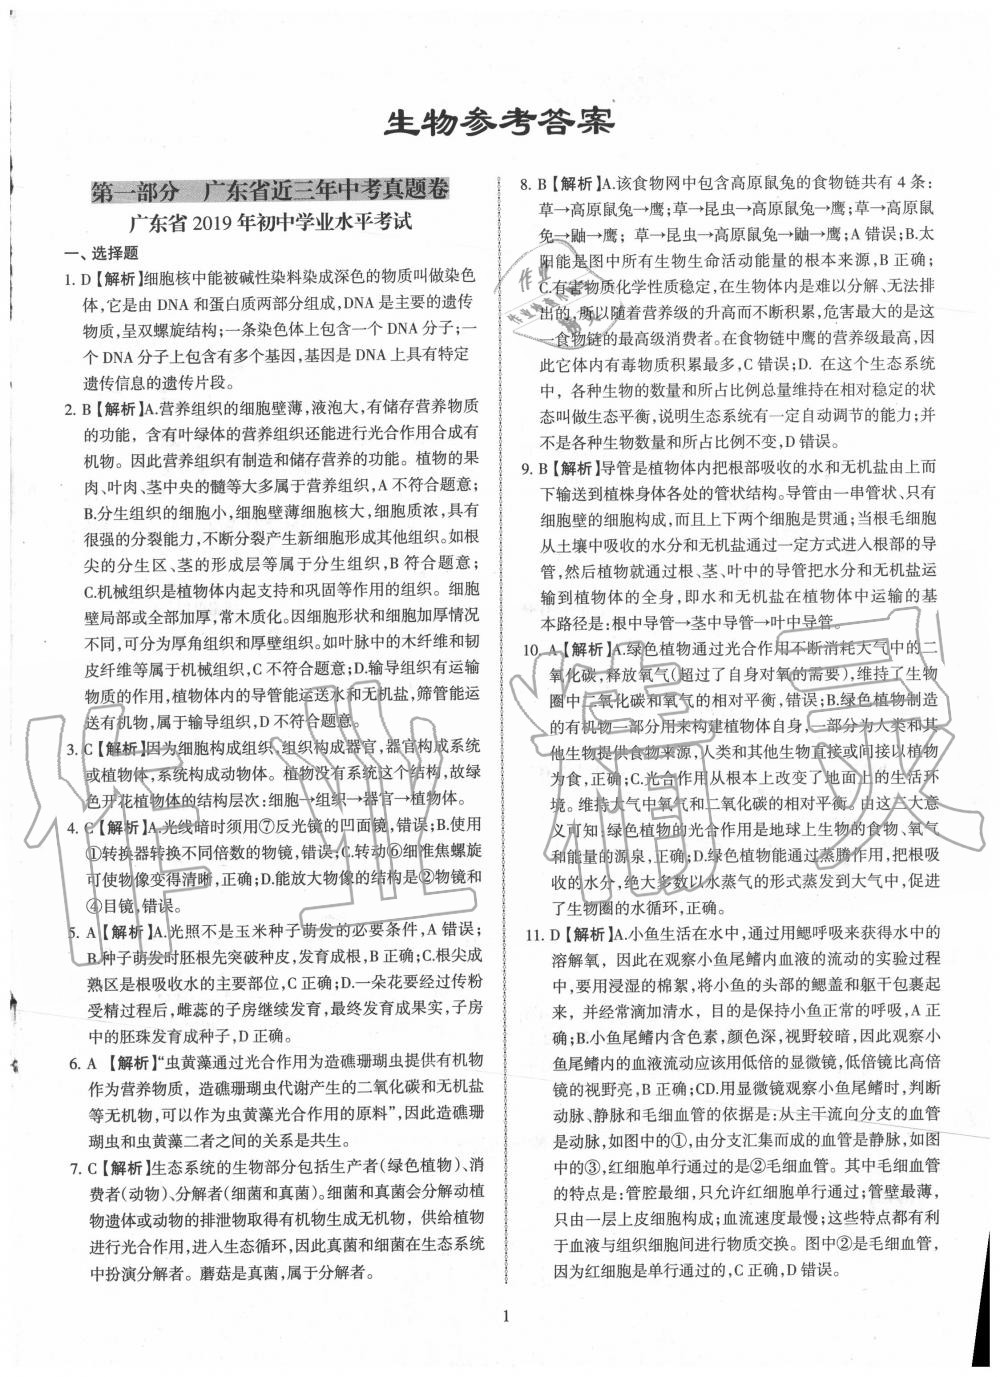 生物参考答案
第一部分 广东省近三年中考真题卷
广东省 2019 年初中学业水平考试
一、选择题
1. D【解析】细胞核中能被碱性染料染成深色的物质叫做染色
体,它是由 DNA 和蛋白质两部分组成,DNA 是主要的遗传
物质,呈双螺旋结构;一条染色体上包含一个 DNA 分子;一
个 DNA 分子上包含有多个基因,基因是 DNA 上具有特定
遗传信息的遗传片段。
2. B【解析】A.营养组织的细胞壁薄,液泡大,有储存营养物质
的功能，含有叶绿体的营养组织还能进行光合作用合成有
机物。因此营养组织有制造和储存营养的功能。植物的果
肉、叶肉、茎中央的髓等大多属于营养组织,A 不符合题意;
B.分生组织的细胞小,细胞壁薄细胞核大,细胞质浓,具有
很强的分裂能力,不断分裂产生新细胞形成其他组织。如根
尖的分生区、茎的形成层等属于分生组织,B 符合题意;
C.机械组织是植物体内起支持和巩固作用的组织。细胞
壁局部或全部加厚,常木质化。因细胞形状和细胞加厚情况
不同,可分为厚角组织和厚壁组织。如叶脉中的木纤维和韧
皮纤维等属于机械组织,C 不符合题意;D.输导组织有运输
物质的作用,植物体内的导管能运送水和无机盐,筛管能运
送有机物,属于输导组织,D 不符合题意。
3. C【解析】因为细胞构成组织、组织构成器官,器官构成系统
或植物体,系统构成动物体。植物没有系统这个结构,故绿
色开花植物体的结构层次:细胞→组织→器官→植物体。
4. C【解析】A.光线暗时须用⑦反光镜的凹面镜,错误;B.使用
①转换器转换不同倍数的物镜,错误;C.转动⑥细准焦螺旋
可使物像变得清晰,正确;D.能放大物像的结构是②物镜和
④目镜,错误。
5. A【解析】A.光照不是玉米种子萌发的必要条件,A 错误;
B.种子萌发时胚根先突破种皮,发育成根,B 正确;C.根尖成
熟区是根吸收水的主要部位,C 正确;D.一朵花要经过传粉
受精过程后,雌蕊的子房继续发育,最终发育成果实,子房
中的胚珠发育成种子,D 正确。
6. A 【解析】“虫黄藻通过光合作用为造礁珊瑚虫提供有机物
作为营养物质，造礁珊瑚虫代谢产生的二氧化碳和无机盐
等无机物,可以作为虫黄藻光合作用的原料”,因此造礁珊
瑚虫和虫黄藻二者之间的关系是共生。
7. C【解析】生态系统的生物部分包括生产者(绿色植物)、消
费者(动物)、分解者(细菌和真菌)。细菌和真菌会分解动植
物遗体或动物的排泄物取得有机物生成无机物，供给植物
进行光合作用,进入生态循环,因此真菌和细菌在生态系统
中扮演分解者。蘑菇是真菌,属于分解者。
8. B【解析】A.该食物网中包含高原鼠兔的食物链共有 4 条:
草→高原鼠兔→鹰;草→昆虫→高原鼠兔→鹰;草→高原鼠
兔→鼬→鹰；草→昆虫→高原鼠兔→鼬→鹰;A 错误;B.太
阳能是图中所有生物生命活动能量的根本来源,B 正确;
C.有害物质化学性质稳定,在生物体内是难以分解、无法排
出的,所以随着营养级的升高而不断积累,危害最大的是这
一食物链的最高级消费者。在食物链中鹰的营养级最高,因
此它体内有毒物质积累最多,C 错误;D. 在这个生态系统
中，各种生物的数量和所占比例总量维持在相对稳定的状
态叫做生态平衡,说明生态系统有一定自动调节的能力;并
不是各种生物数量和所占比例不变,D 错误。
9. B【解析】导管是植物体内把根部吸收的水和无机盐由上而
下输送到植株身体各处的管状结构。导管由一串管状、只有
细胞壁的细胞构成,而且上下两个细胞是贯通;当根毛细胞
从土壤中吸收的水分和无机盐通过一定方式进入根部的导
管,然后植物就可以通过根、茎、叶中的导管把水分和无机盐运
输到植物体的全身,即水和无机盐在植物体中运输的基
本路径是:根中导管→茎中导管→叶中导管。
10. A【解析】A.绿色植物通过光合作用不断消耗大气中的二
氧化碳,释放氧气(超过了自身对氧的需要),维持了生物
圈中二氧化碳和氧气的相对平衡,错误;B.绿色植物制造
的有机物一部分用来构建植物体自身,一部分为人类和其
他生物提供食物来源,人类和其他生物直接或间接以植物
为食,正确;C.光合作用从根本上改变了地面上的生活环
境。维持大气中氧气和二氧化碳的相对平衡。由这三大意
义可知:绿色植物的光合作用是地球上生物的食物、氧气
和能量的源泉,正确;D.绿色植物能通过蒸腾作用,把根吸
收的水分,绝大多数以水蒸气的形式蒸发到大气中,促进
了生物圈的水循环,正确。
11. D【解析】A.小鱼生活在水中,通过用鳃呼吸来获得水中的
溶解氧，因此在观察小鱼尾鳍内血液的流动的实验过程
中,要用浸湿的棉絮,将小鱼的头部的鳃盖和躯干包裹起
来，并经常滴加清水，目的是保持小鱼正常的呼吸,A 正
确;B.小鱼尾鳍内含色素,颜色深,视野较暗,因此观察小
鱼尾鳍内的血液流动应该用低倍的显微镜,低倍镜比高倍
镜的视野亮,B 正确;CD.用显微镜观察小鱼尾鳍时,判断
动脉、静脉和毛细血管的依据是:从主干流向分支的血管
是动脉,如图中的①,由分支汇集而成的血管是静脉,如图
中的③,红细胞单行通过的是②毛细血管。其中毛细血管
的特点是:管腔最细,只允许红细胞单行通过;管壁最薄,
只由一层上皮细胞构成;血流速度最慢;这些特点都有利
于血液与组织细胞间进行物质交换。图中②是毛细血管,
因为红细胞是单行通过的,C 正确,D 错误。
1
作业精灵